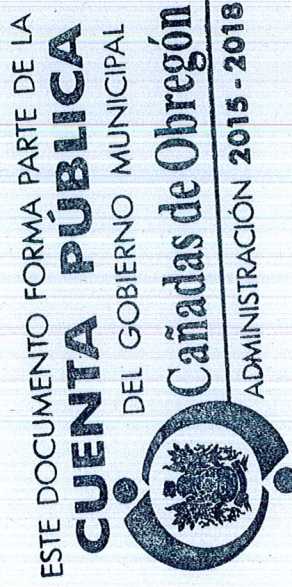 ESTE DOCUMENTO FORMA PARTE DE LA
CUENTA PÚBLICA
DEL GOBIERNO MUNICIPAL
Cañadas de Obregón
ADMINISTRACIÓN 2015-2018